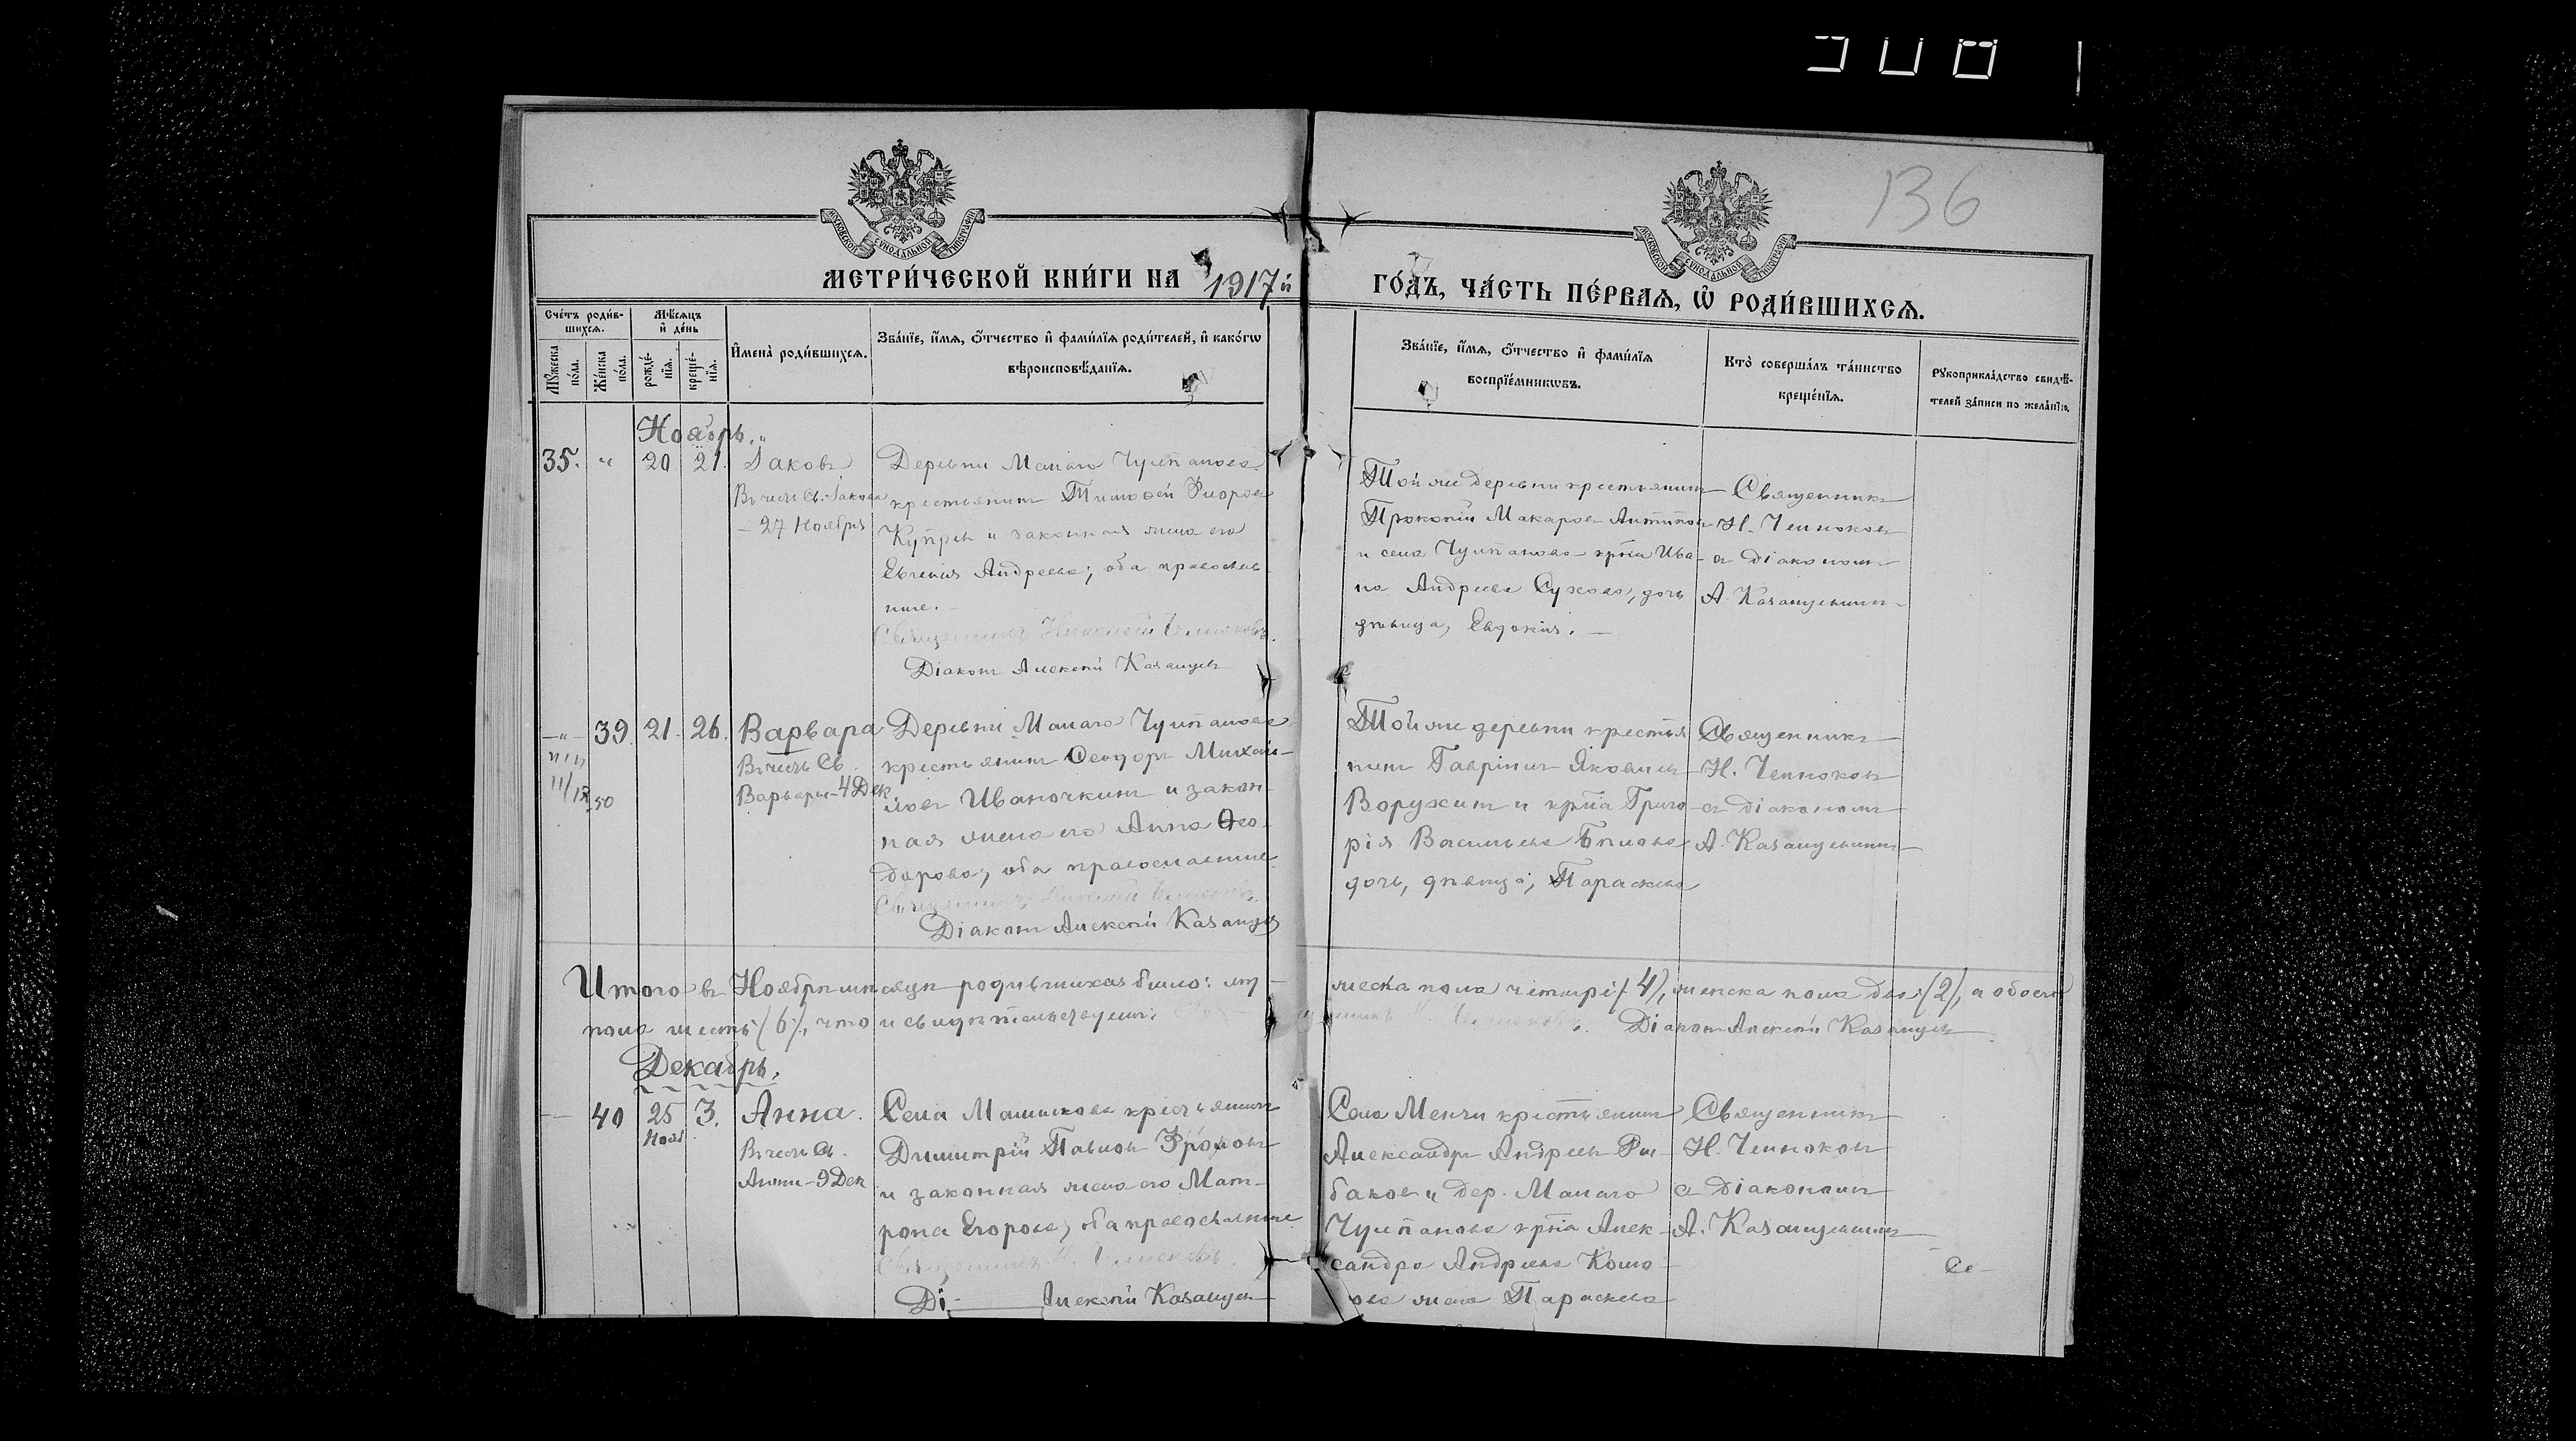 308
136
МОСКОВСКОЙ СѴНОДАЛЬНОЙ ТИПОГРАФІИ
МОСКОВСКОЙ СѴНОДАЛЬНОЙ ТИПОГРАФІИ
МЕТРИ́ЧЕСКОЙ КНИ́ГИ НА 1917й
ГО́ДЪ, ЧА́СТЬ ПЕ́РВАѦ, Ѽ РОДИ́ВШИХСѦ.
Сче́тъ роди́в-
шихсѧ.
Мꙋжеска
по́ла.
Же́нска
по́ла.
Мѣ́сѧцъ
и҆ де́нь
рожде́-
нїѧ.
креще́-
нїѧ.
И҆мена̀ роди́вшихсѧ.
Зва́нїе, и҆́мѧ, ѻ҆́тчество и҆ фами́лїѧ роди́телей, и҆ како́гѡ
вѣроисповѣ́данїѧ.
Зва́нїе, и҆́мѧ, ѻ҆́тчество и҆ фами́лїѧ
воспрїе́мникѡвъ.
Кто̀ соверша́лъ та́инство
креще́нїѧ.
Рꙋкоприкла́дство свидѣ́-
телей за́писи по жела́нїю.
Ноябрь.
35. " 20. 21. Іаковъ
Въ честь Св. Іакова
- 27 Ноября
Деревни Малаго Чулпанова
крестьянинъ Тимоѳей
и законная жена его
Евгенія Андреева; оба православ-
ные.
Священникъ Николай
Діаконъ Алексѣй Казанцевъ
Той же деревни крестьянинъ
Прокопій Макаровъ Антиповъ
и села Чулпанова кр-на Ива-
на Андреева Сухова, дочь
дѣвица, Евдокія.
Священникъ
Н.
съ діакономъ
А. Казанцевымъ
-"- 39. 21. 26. Варвара
Въ честь Св.
Варвары - 4 Дек
50
Деревни Малаго Чулпанова
крестьянинъ Ѳеодоръ Михай-
ловъ Иваночкинъ и закон-
ная жена его Анна Ѳео-
дорова; оба православные
Священникъ
Діаконъ Алексѣй Казанцевъ
Той же деревни крестья
нинъ Гавріилъ Яковлевъ
и кр-на Григо-
рія Васильева
дочь, дѣвица, Параскева
Священникъ
Н.
съ діакономъ
А. Казанцевымъ
Итого въ Ноябрѣ мѣсяцѣ родившихся было: му-
жеска пола четыре (4), женска пола два (2), а обоего
пола шесть (6), что и свидѣтельствуемъ:
Діаконъ Алексѣй Казанцевъ
Декабрь.
40 25 3. Анна.
Нояб.
Въ честь Св.
Анны - 9 Дек
Села крестьянинъ
Димитрій Павловъ Фроловъ
и законная жена его Мат-
рона Егорова; оба православные
Священникъ Н.
Ді- Алексѣй Казанцевъ
Села Менчи крестьянинъ
Александръ Андреевъ Ры-
баковъ и дер. Малаго
Чулпанова кр-на Алек-
сандра Андреева
жена Параскева
Священникъ
Н.
съ діакономъ
А. Казанцевымъ
Се-